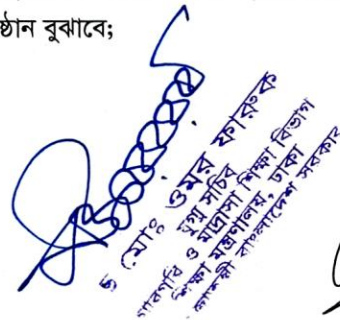 ষ্ঠান বুঝাবে;
ড মোঃ ওমর ফারুক
যুগ্ম সচিব
কারিগরি ও মাদ্রাসা শিক্ষা বিভাগ
শিক্ষা মন্ত্রণালয়, ঢাকা
বাংলাদেশ সরকার